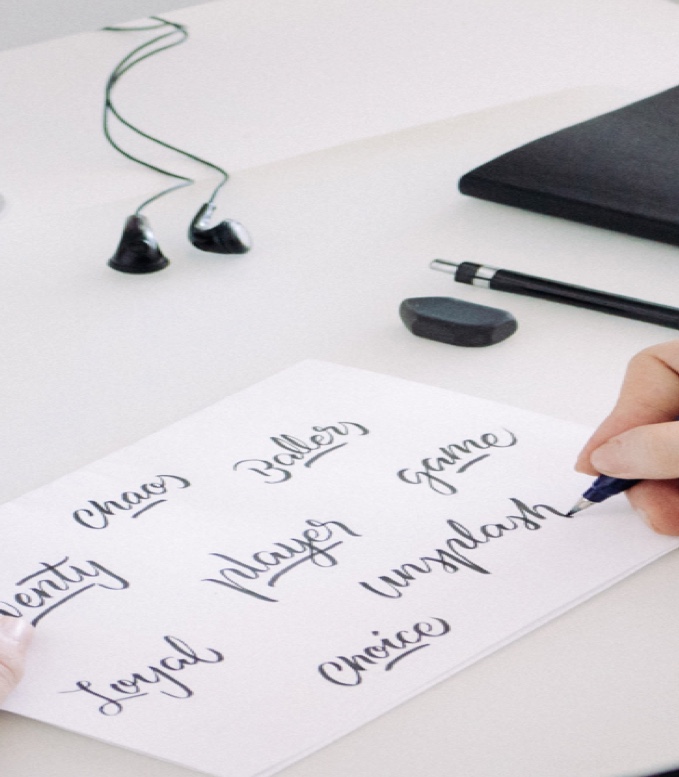 chaos Ballers game
player unsplash
Loyal Choice